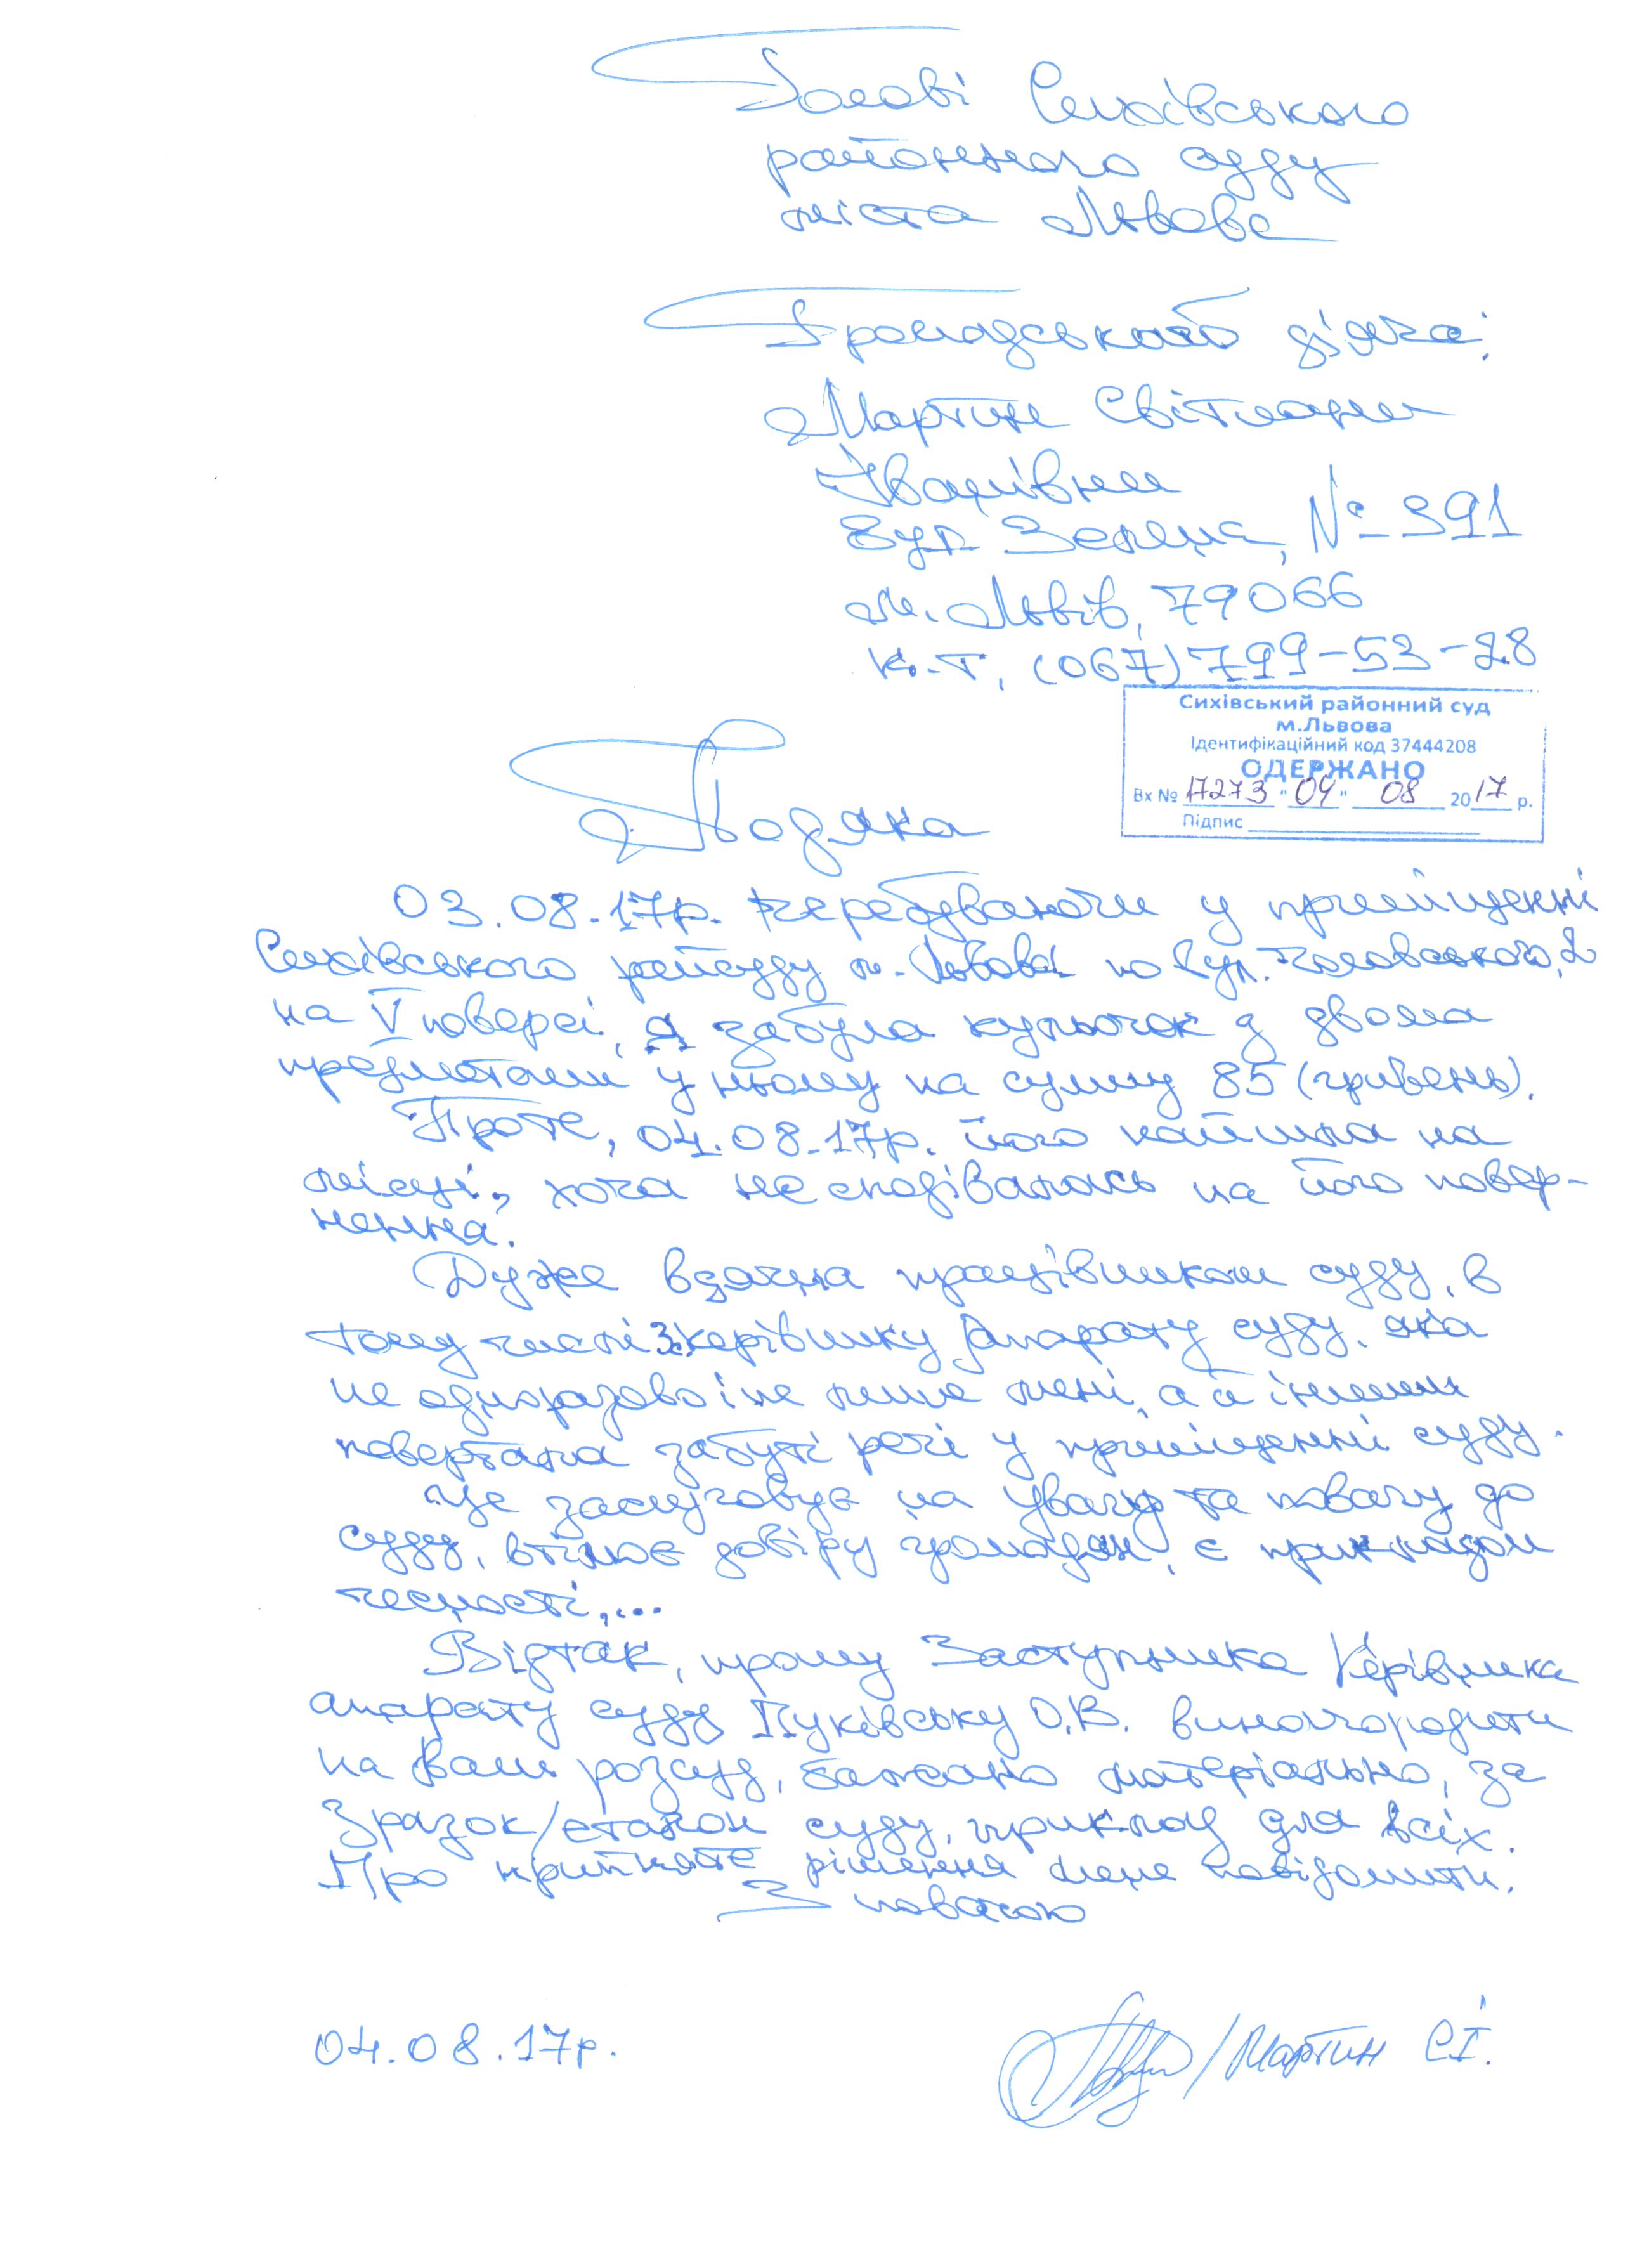 Голові Сихівського
районного суду
міста Львова
Громадської діячки:
Мартин Світлани
Іванівни
вул. Зелена, № 391
м. Львів, 79066
к.т. (067) 799-53-28
Сихівський районний суд
м.Львова
Ідентифікаційний код 37444208
ОДЕРЖАНО
Вх № 17273 "04" 08 2017 р.
Підпис
Подяка
03.08.17р. перебуваючи у приміщенні
Сихівського райсуду м. Львова по вул. Чукаріна, 2
на V поверсі, я забула кульочок з двома
предметами у ньому на суму 85 (гривень).
Проте, 04.08.17р. його найшла на
місці, хоча не сподівалась на його повер-
нення.
Дуже вдячна працівникам суду, в
тому числі З. керівнику апарату суду, яка
не одноразово і не лише мені, а й іншим
повертала забуті речі у приміщенні суду.
Це заслуговує на увагу та повагу до
суду, втілює довіру громадян, є прикладом
чесності,...
Відтак, прошу Заступника Керівника
апарату суду Пуківську О.В. винагородити
на Ваш розсуд, бажано матеріально, за
зразок/еталон суду, приклад для всіх.
Про прийняте рішення мене повідомити.
З повагою
04.08.17р.
/Мартин С.І.